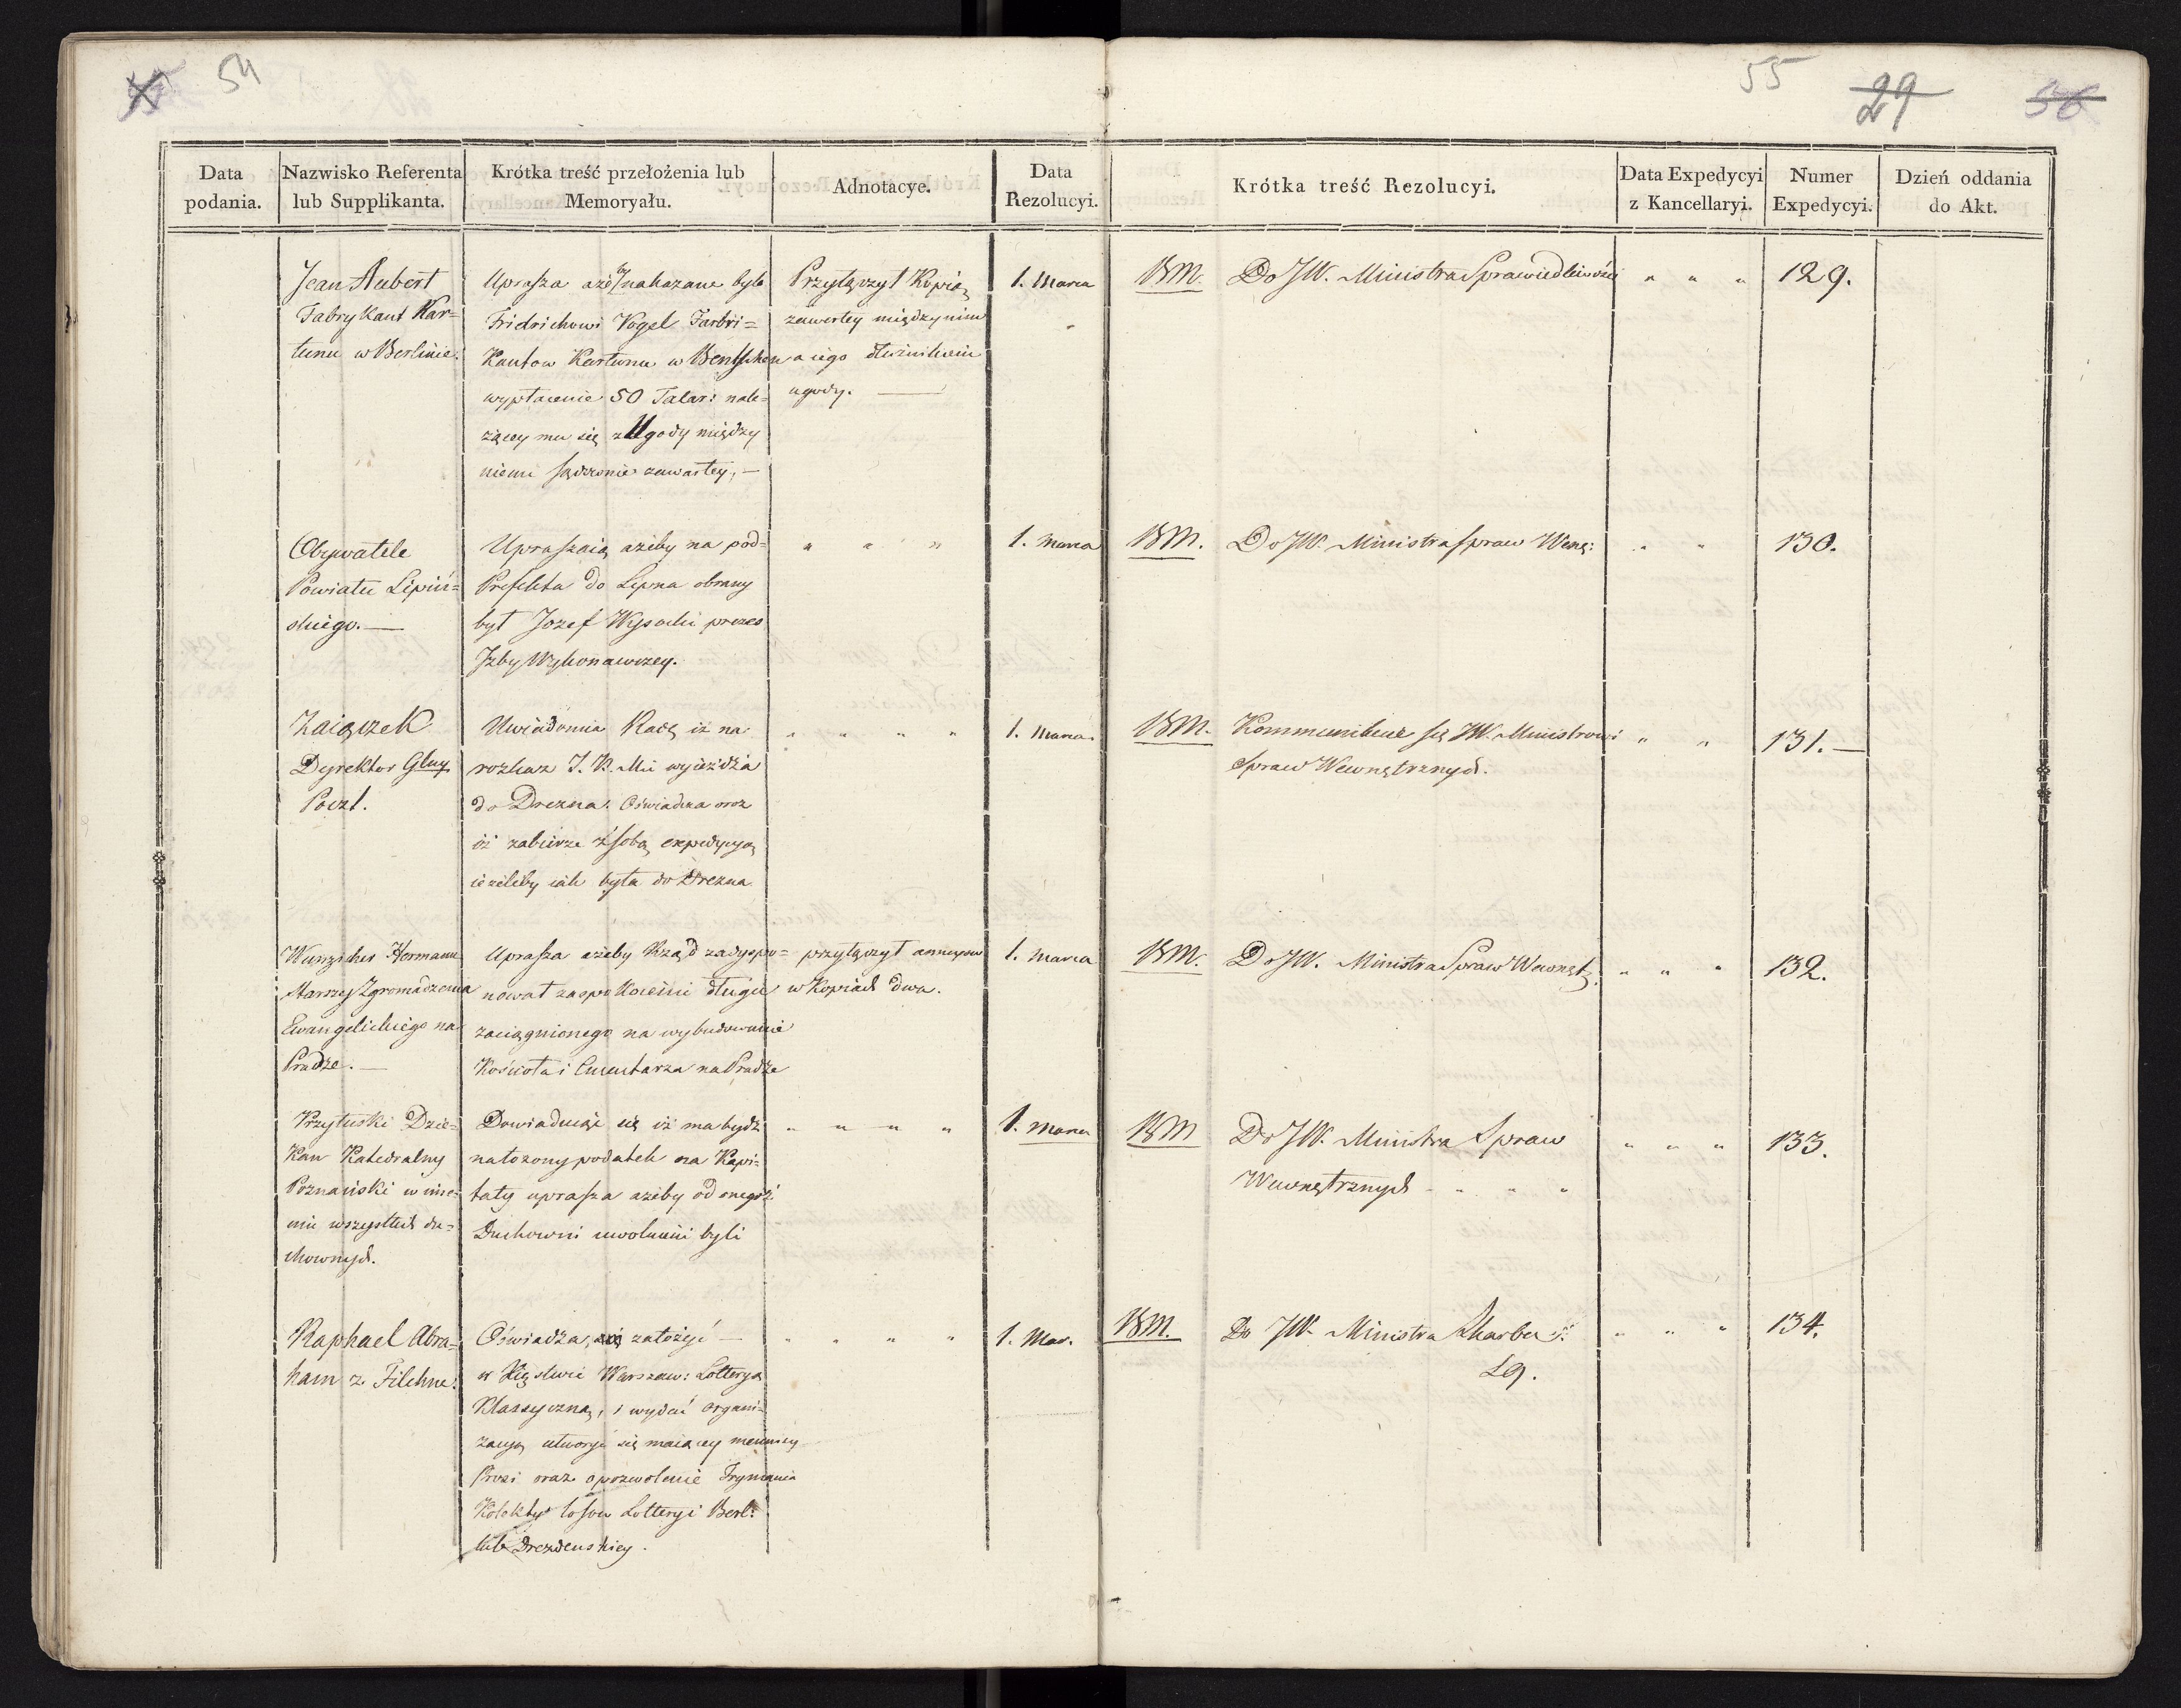 54
55
29
56
Data podania.
Nazwisko Referenta lub Supplikanta.
Krótka treść przełożenia lub Memoryału.
Adnotacye.
Data Rezolucyi.
Krótka treść Rezolucyi.
Data Expedycyi z Kancellaryi.
Numer Expedycyi.
Dzień oddania do Akt.
Jean Aubert
Fabrykant Kar=
tunu w Berlinie.
Uprasza ażeby nakazane było
Fridrichowi Vogel Fabri=
kantow Kartunu w Bentschen
wypłacenie 50 Talar: nale=
żącey mu się z Ugody między
niemi sądownie zawartey, —
Przyłączył Kopią
zawartey między nim
a iego dłużnikiem
ugody. —
1. Marca
BM.
Do JW. Ministra Sprawiedliwości
" " "
129.
Obywatele
Powiatu Lipiń=
skiego. —
Upraszaią ażeby na pod=
Prefekta do Lipna obrany
był Jozef Wysocki prezes
Izby Wykonawczey.
" " "
1. Marca
BM.
Do JW. Ministra Spraw Wenę:
" "
130.
Zaiączek
Dyrektor Głuy
Poczt.
Uwiadomia Radę iż na
rozkaz J. K. Mci wyieżdża
do Drezna. Oświadcza oraz
iż zabierze z sobą expedycyą
ieżeliby iak była do Drezna
" " " "
1. Marca.
BM.
Kommunikuie się JW. Ministrowi
Spraw Wewnętrznych.
" "
131. —
Hermann
Starszy Zgromadzenia
Ewangelickiego na
Pradze. —
Uprasza ażeby Rząd zadyspo=
nował zaspokoienie długu
zaciągnionego na wybudowanie
Kościoła i Cmentarza na Pradze
przyłączył annexow
w Kopiach dwa.
1. Marca
BM.
Do JW. Ministra Spraw Wewnęt.
" " "
132.
Przyłuski Dzie=
kan Katedralny
Poznański w imie=
niu wszystkich du=
chownych.
Dowiaduiąc się iż ma bydź
nałożony podatek na Kapi=
tały uprasza ażeby od onegoż
Duchowni uwolnieni byli
" " " "
1. Marca
BM
Do JW. Ministra Spraw
Wewnętrznych " " "
" " "
133.
Raphael Abra=
ham z Filehne.
Oświadcza się założyć —
w Xięstwie Warszaw: Lotteryą
Klassyczną, i wydać organi=
zacyą utworzyć się maiącey mennicy
Prosi oraz o pozwolenie Trzymania
Kolekty losow Lotteryi Berl:
lub Drezdenskiey.
" " " "
1. Mar.
BM.
Do JW. Ministra Skarbu
" " "
134.